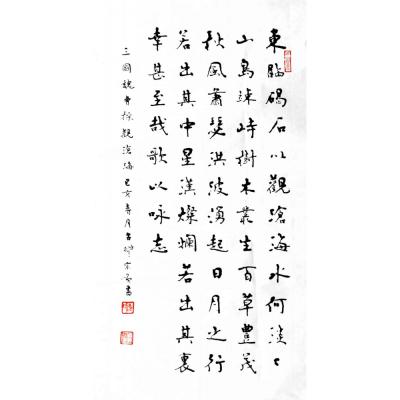 東臨碣石以觀滄海水何澹々
山島竦峙樹木叢生百草豐茂
秋風蕭瑟洪波湧起日月之行
若出其中星漢燦爛若出其裏
幸甚至哉歌以咏志
三國魏曹操觀滄海己亥春月書